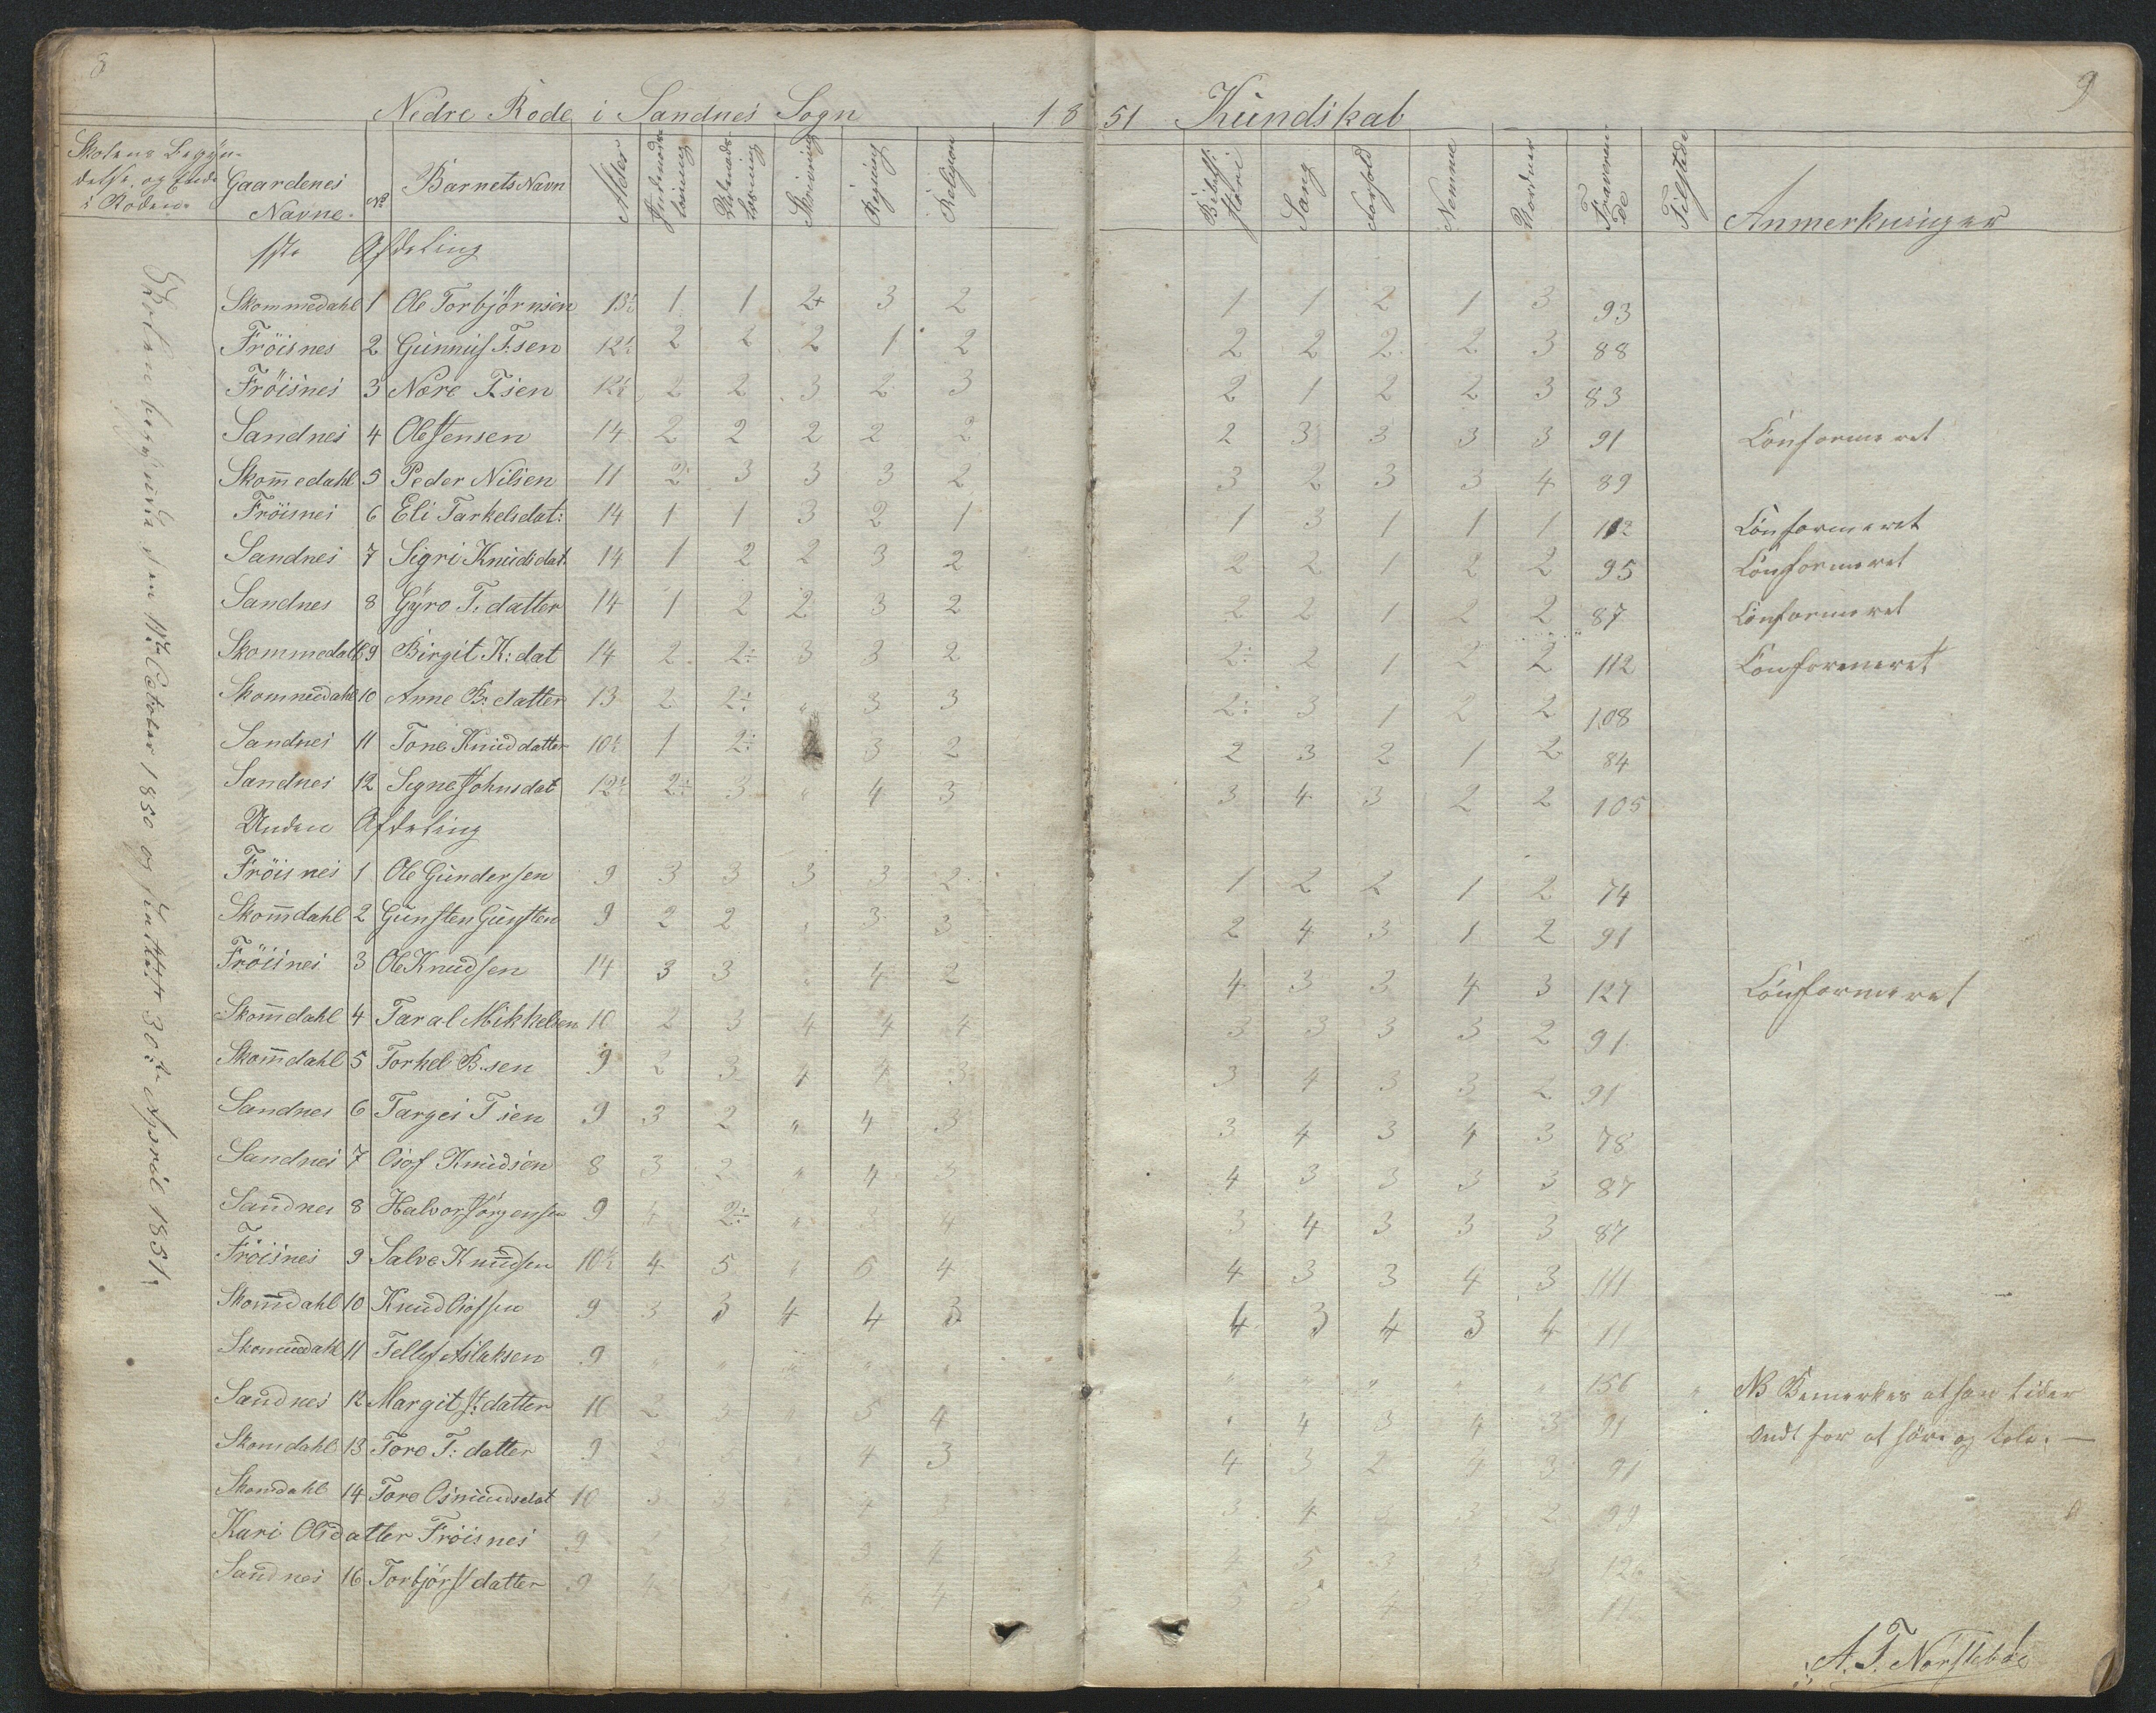 8
9
Nedre Rode i Sandnes Sogn 1851 Kundskab
Skolens Begyn-
delse og Ende
i Roden.
Gaardenes Navne. No Barnets Navn Alder Indenads læsning Udenads læsning Skrivning Regning Religion Bibelhistorie Sang Forhold Nemme Fraværende Tilstede Anmerkninger
Skolen begyndte den 11te October 1850 og sluttet 30te April 1851
1ste Afdeling
Skommedahl 1 Ole Torbjörnsen 13½ 1 1 2+ 3 2 1 1 2 1 3 93
Fröisnes 2 Gunnuf T:sen 12½ 2 2 2 1 2 2 2 2 2 3 88
Fröisnes 3 Nore T.sen 12½ 2 2 3 2 3 2 1 2 2 3 83
Sandnes 4 Ole Jensen 14 2 2 2 2 2 2 3 3 3 3 91 Confirmeret
Skom̄edahl 5 Peder Nilsen 11 2 3 3 3 2 3 2 3 3 4 89
Fröisnes 6 Eli Tarkelsdat: 14 1 1 3 2 1 1 3 1 1 1 112 Confirmeret
Sandnes 7 Sigri Knudsdat. 14 1 2 2 3 2 2 2 1 2 2 95 Confirmeret
Sandnes 8 Gyro T. datter 14 1 2 2 3 2 2 2 1 2 2 87 Confirmeret
Skommedahl 9 Birgit K: dat 14 2 2÷ 3 3 2 2÷ 2 1 2 2 112 Confirmeret
Skommedahl 10 Anne B: datter 13 2 2÷ " 3 3 2÷ 3 1 2 2 108
Sandnes 11 Tone Knuddatter 10½ 1 2÷ 2 3 2 2 3 2 1 2 84
Sandnes 12 Signe Johnsdat 12½ 2÷ 3 " 4 3 3 4 3 2 2 105
Anden Afdeling
Fröisnes 1 Ole Gundersen 9 3 3 3 3 2 1 2 2 1 2 74
Skom̄dahl 2 Gunsten Gunsten 9 2 2 " 3 3 2 4 3 1 2 91
Fröisnes 3 Ole Knudsen 14 3 3 " 4 2 4 3 3 4 3 127 Confirmeret
Skom̄dahl 4 Taral Mikkelsen 10 2 3 4 4 4 3 3 3 3 2 91
Skom̄dahl 5 Torkel B.sen 9 2 3 4 4 3 3 4 3 3 2 91
Sandnes 6 Targei T sen 9 3 2 " 4 3 3 4 3 4 3 78
Sandnes 7 Osof Knudsen 8 3 2 " 4 3 4 3 3 3 3 87
Sandnes 8 Halvor Jörgensen 9 4 2÷ " 3 4 3 4 3 3 3 87
Fröisnes 9 Salve Knudsen 10½ 4 5 " 5 4 4 3 3 4 3 111
Skom̄dahl 10 Knud Osofsen 9 3 3 4 4 3 4 3 4 3 4 11
Skommedahl 11 Tellef Aslaksen 9 " " " " " " " " " " 156 " NB Bemerkes at han lider
Ondt for at höre og tale. —
Sandnes 12 Margit J: datter 10 2 3 " 5 4 4 3 4 3 91
Skomdahl 13 Tore T: datter 9 2 4 3 4 3 2 4 3 91
Skomdahl 14 Tore Osmundsdat 10 3 3 4 3 3 4 3 3 2 99
Kari Olsdatter Fröisnes 9 2 3 4 5 3 3
Sandnes 16 Torbjör J datter 9 4 4 5 5 4
A. T. Norstebøe